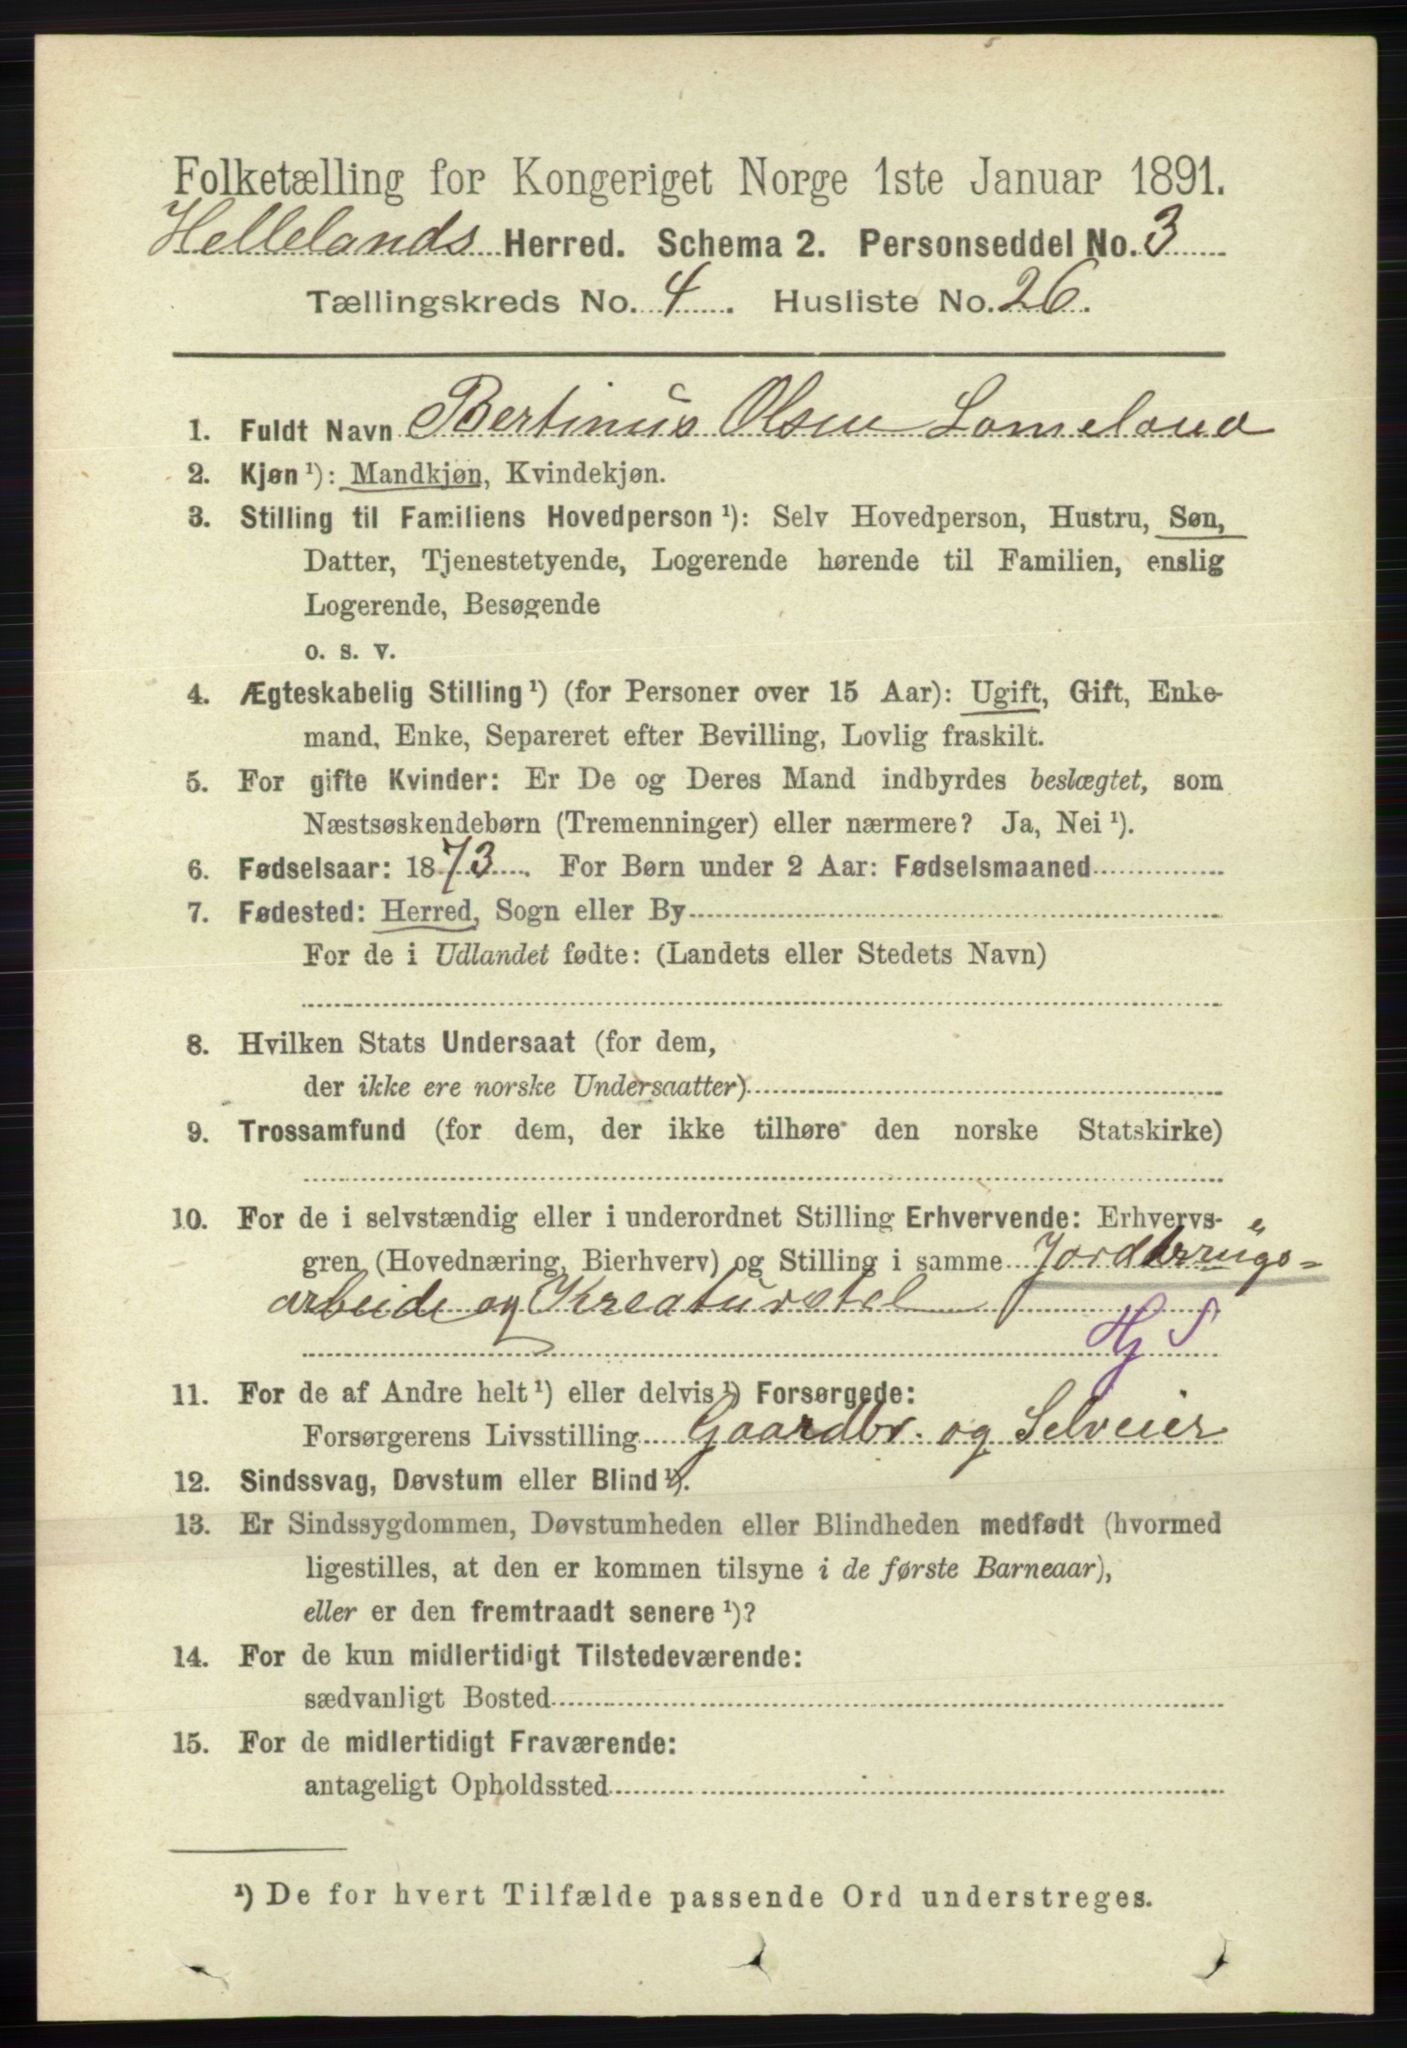 Folketælling for Kongeriget Norge 1ste Januar 1891.
Hellelands Herred. Schema 2. Personseddel No. 3
Tællingskreds No. 4. Husliste No. 26.
1. Fuldt Navn Bertinus Olsen Lomeland
2. Kjøn ¹): Mandkjøn, Kvindekjøn.
3. Stilling til Familiens Hovedperson ¹): Selv Hovedperson, Hustru, Søn,
Datter, Tjenestetyende, Logerende hørende til Familien, enslig
Logerende, Besøgende
o. s. v.
4. Ægteskabelig Stilling ¹) (for Personer over 15 Aar): Ugift, Gift, Enke-
mand, Enke, Separeret efter Bevilling, Lovlig fraskilt.
5. For gifte Kvinder: Er De og Deres Mand indbyrdes beslægtet, som
Næstsøskendebørn (Tremenninger) eller nærmere? Ja, Nei ¹).
6. Fødselsaar: 1873. For Børn under 2 Aar: Fødselsmaaned
7. Fødested: Herred, Sogn eller By
For de i Udlandet fødte: (Landets eller Stedets Navn)
8. Hvilken Stats Undersaat (for dem,
der ikke ere norske Undersaatter)
9. Trossamfund (for dem, der ikke tilhøre den norske Statskirke)
10. For de i selvstændig eller i underordnet Stilling Erhvervende: Erhvervs-
gren (Hovednæring, Bierhverv) og Stilling i samme Jordbrugs=
arbeide og Kreaturstel
Hj S
11. For de af Andre helt ¹) eller delvis ¹) Forsørgede:
Forsørgerens Livsstilling Gaardbr. og Selveier
12. Sindssvag, Døvstum eller Blind ¹).
13. Er Sindssygdommen, Døvstumheden eller Blindheden medfødt (hvormed
ligestilles, at den er kommen tilsyne i de første Barneaar),
eller er den fremtraadt senere ¹)?
14. For de kun midlertidigt Tilstedeværende:
sædvanligt Bosted
15. For de midlertidigt Fraværende:
antageligt Opholdssted
¹) De for hvert Tilfælde passende Ord understreges.